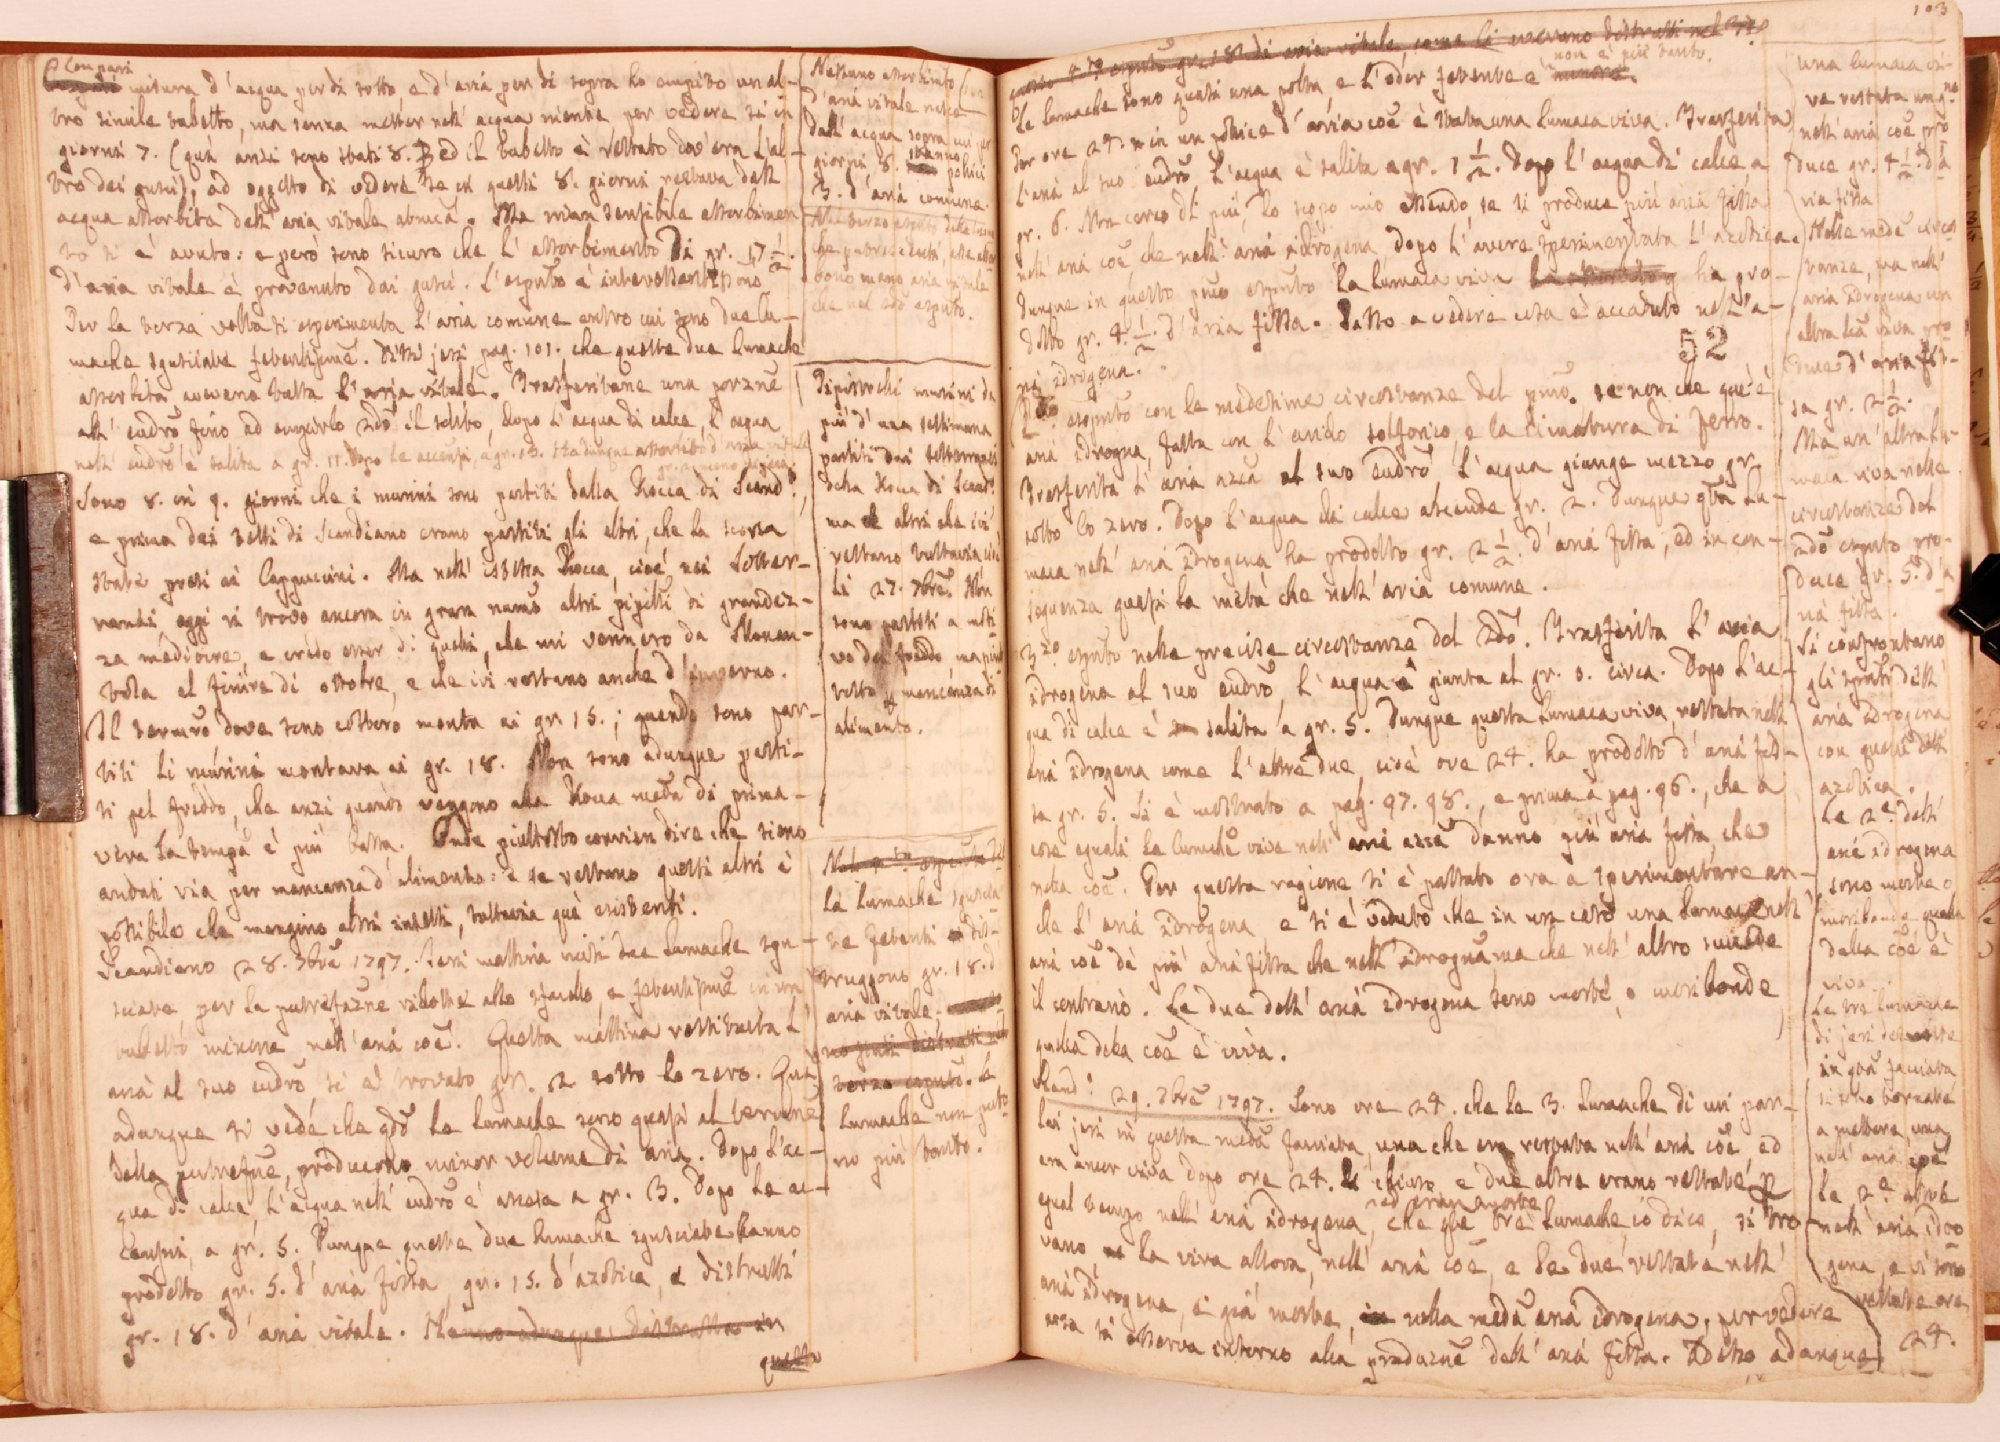 Con pari
misura d'acqua per di sotto e d'aria per di sopra ho empito un al-
tro simile tubetto, ma senza metter nell'acqua niente per vedere se in
giorni 7. (quà anzi sono stati 8.) ed il tubetto è restato dov'era l'al-
tro dei gusci), ad oggetto di vedere se in questi 8. giorni restava dall'
acqua assorbita dell'aria vitale atmca. Ma niun sensibile assorbimen
to si è avuto: e però sono sicuro che l'assorbimento di gr. 17 1/2.
d'aria vitale è provenuto dai gusci. L'esputo è interessantissimo
Per la terza volta si esperimenta l'aria comune entro cui sono due lu-
mache sgusciate fetentissime. Dissi jeri pag. 101. che queste due lumache
assorbita avevano tutta l'aria vitale. Trasferitane una porzne
all'eudro fino ad empirlo 2do il solito, dopo l'acqua di calce, l'acqua
nell'eudro è salita a gr. 11. Dopo le accensi, a gr. 13. Ha dunque assorbito d'aria vitale
Sono 8. in 9. giorni che i murini sono partiti dalla Rocca di Scand.º,
e prima dei tetti di Scandiano erano partiti gli altri, che la scorsa
state presi ai Cappuccini. Ma nell'istessa Rocca, cioè nei Sotter-
ranei oggi vi trovo ancora in gran numo altri pipistri di grandez-
za mediocre, e credo esser di quelli, che mi vennero da
volta al finire di ottobre, e che ivi restano anche d'inverno.
Il termro dove sono costoro monta ai gr. 15.; quando sono par-
titi li murini montava ai gr. 18. Non sono adunque parti-
ti pel freddo, che anzi quando vengono alla Rocca meda di prima-
vera la tempa è più bassa. Onde piuttosto convien dire che siano
andati via per mancanza d'alimento: e se restano questi altri è
possibile che mangino altri insetti, tuttavia quà esistenti.
Scandiano 28. 7bre 1797. Jeri mattina misi due lumache sgu-
sciate per la putrefazne ridotte allo sfacelo e fetentissime in un
tubetto minore nell'aria coe. Questa mattina restituita l'
aria al suo eudro, si è trovato gr. 2 sotto lo zero. Quì
adunque si vede che qdo le lumache sono quasi al termine
della putrefne, producono minor volume di aria. Dopo l'ac-
qua di calce, l'acqua nell'eudro è ascesa a gr. 3. Dopo le ac-
censni, a gr. 5. Dunque queste due lumache sgusciate hanno
prodotto gr. 5. d'aria fissa, gr. 15. d'azotica, e distrutti
gr. 18. d'aria vitale. Hanno adunque distrutta in
questo
Nessuno assorbimento
d'aria vitale nasce
dall'acqua sopra cui per
giorni 8. stanno pollici
3. d'aria comune.
Nel terzo esputo delle lumache
che putrescenti, esse assor
bono meno aria vitale
che nel 2do esputo.
Pipistrelli murini da
più d'una settimana
partiti dai sotterranei
della Rocca di Scand.º
ma altri che ivi
restano tuttavia, cioè
li 27. 7bre. Non
sono partiti a moti-
vo del freddo ma piut
tosto p mancanza di
alimento.
Le lumache sguscia
te fetenti dis-
truggono gr. 18. d'
aria vitale.
terzo esputo. Le
lumache non pute
no più tanto.
103
gr. 18 di aria vitale, come li avevano distrutti nel 3zo
non è più tanto.
Le lumache sono quasi una polta, e l'odor fetente è minore.
Per ore 24. in un pollice d'aria coe è stata una lumaca viva. Trasferita
l'aria al suo eudro l'acqua è salita a gr. 1 1/2. Dopo l'acqua di calce a
gr. 6. Non cerco di più, lo scopo mio essendo, se si produce più aria fissa
nell'aria coe che nell'aria idrogena, dopo l'avere sperimentata l'azotica.
Dunque in questo pmo esputo la lumaca viva ha pro-
dotto gr. 4. 1/2. d'aria fissa. Sotto a vedere cosa è accaduto nell'a-
ria idrogena.
52
2do esputo con le medesime circostanze del pmo. se non che quì è
aria idrogena, fatta con l'acido solforico, e la limatura di ferro.
Trasferita l'aria al suo eudro, l'acqua giunge mezzo gr.
sotto lo zero. Dopo l'acqua di calce ascende gr. 2. Dunque qta lu-
maca nell'aria idrogena ha prodotto gr. 2 1/2. d'aria fissa, ed in con-
seguenza quasi la metà che nell'aria comune.
3zo esputo nelle precise circostanze del 2do. Trasferita l'aria
idrogena al suo eudro, l'acqua è giunta al gr. 0. circa. Dopo l'ac-
qua di calce è salita a gr. 5. Dunque questa lumaca viva restata nell'
aria idrogena come l'altre due, cioè ore 24. ha prodotto d'aria fis-
sa gr. 5. Si è mostrato a pag. 97. 98., e prima a pag. 96., che a
cose eguali le lumache vive nell'aria azca danno più aria fissa, che
nella coe. Per questa ragione si è passato ora a sperimentare an-
che l'aria idrogena e si è veduto che in un caso una lumaca nell'
aria coe dè più aria fissa che nell'idrogena, ma che nell'altro succede
il contrario. Le due dell'aria idrogena sono morte, o moribonde
quella della coe è viva.
Scand.º 29. 7bre 1797. Sono ore 24. che le 3. lumache di cui par-
lai jeri in questa meda facciata, una che era restata nell'aria coe ed
era ancor viva dopo ore 24. e due altre erano restate p
ed eran morte
egual tempo nell'aria idrogena, che qste tre lumache, io dico, si tro-
vano, la viva allora, nell'aria coe, e le due restate nell'
aria idrogena, e già morte, nella meda aria idrogena, per vedere
cosa si osserva intorno alla produzne dell'aria fissa. Dico adunque
una lumaca vi-
va restata un gno
nell'aria coe pro
duce gr. 4 1/2. d'a
ria fissa
Nelle mede circo
stanze, ma nell'
aria idrogena un
altra lca viva pro
duce d'aria fis-
sa gr. 2 1/2.
Ma un'altra lu-
maca viva nelle
circostanze del
2do esputo pro-
duce gr. 5. d'a
ria fissa.
Si confrontano
gli esputi dell'
aria idrogena
con quelli dell'
azotica.
Le 2e. dell'
aria idrogena
sono morte o
moribonde quella
della coe è
viva.
Le tre lumache
di jeri
in qta facciata
si sono tornate
a mettere, una
nell'aria coe
le 2e. altre
nell'aria idro
gena, e vi sono
restate ore
24.